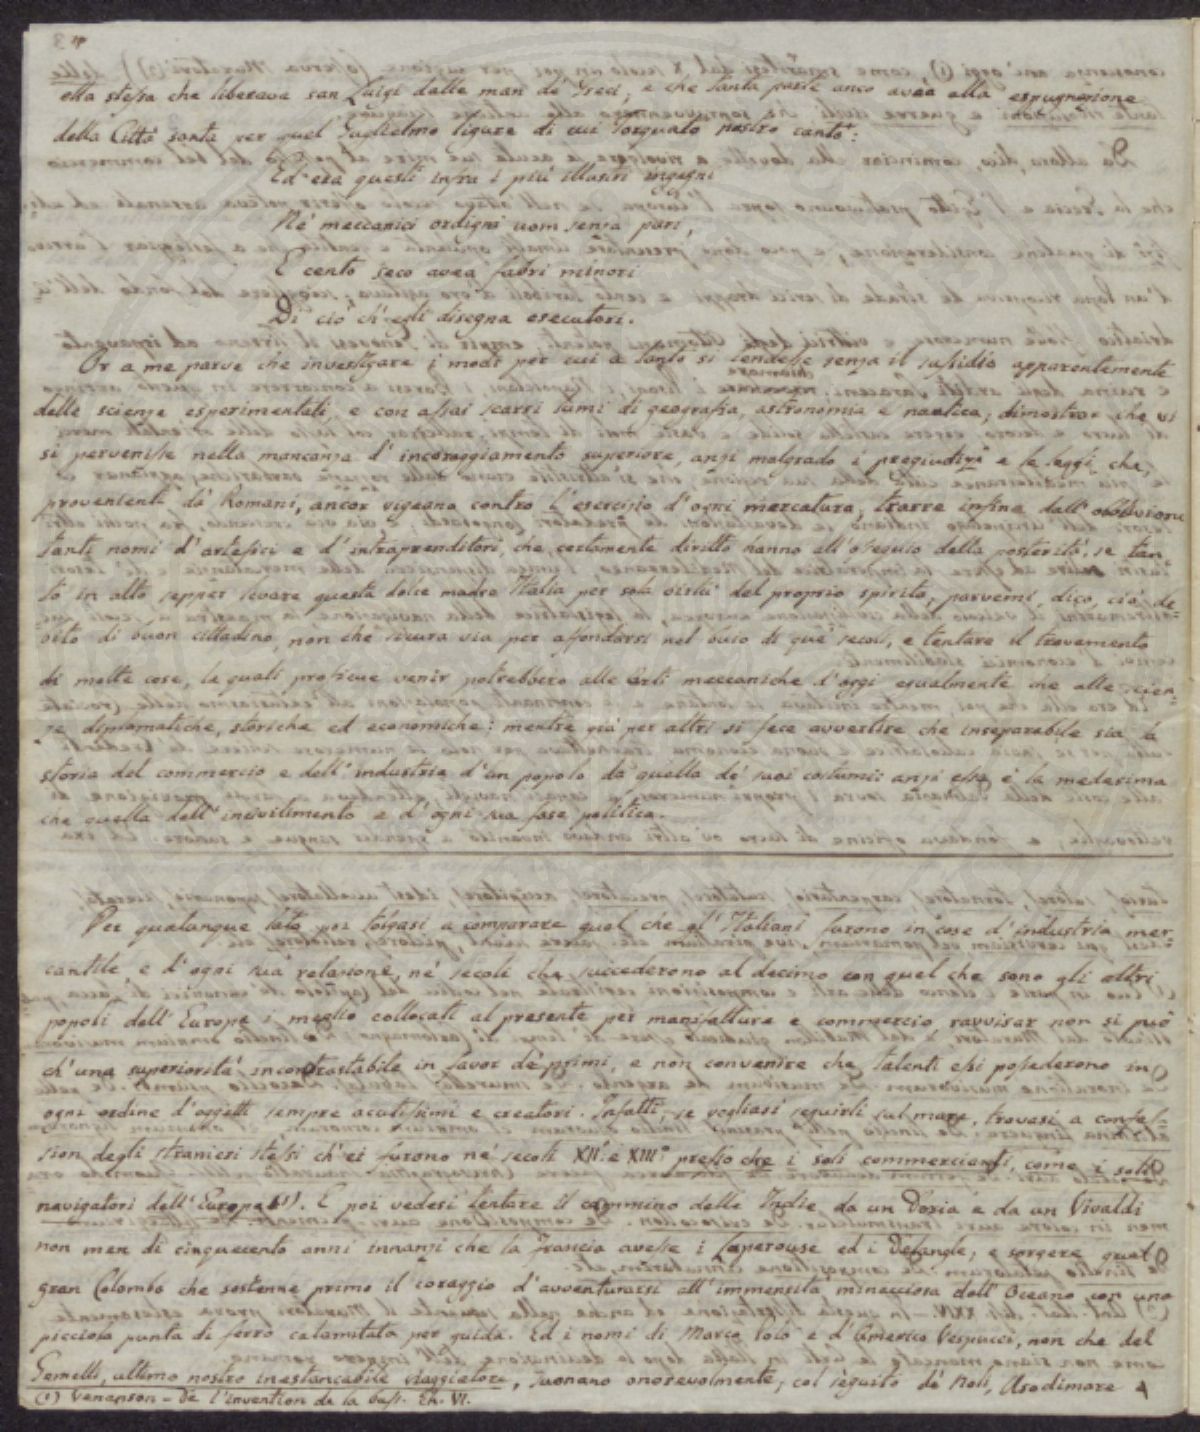 3
etta stessa che liberava san Luigi dalle man de' Greci; e che tanta parte anco avea alla espugnazione
della Città santa per quel Guglielmo ligure di cui Torquato nostro cantò:
Ed era questi infra i più illustri ingegni
Ne' meccanici ordigni uom senza pari,
E cento seco avea fabri minori
Di ciò ch'egli disegna esecutori.
Or a me parve che investigare i modi per cui a tanto si tendesse senza il sussidio apparentemente
delle scienze esperimentali, e con assai scarsi lumi di geografia, astronomia e nautica; dimostrar che vi
si pervenisse nella mancanza d'incoraggiamento superiore, anzi malgrado i pregiudizi e le leggi che,
provenienti da' Romani, ancor vigeano contro l'esercizio d'ogni mercatura; trarre infine dall'obblivione
tanti nomi d'artefici e d'intraprenditori, che certamente diritto hanno all'ossequio della posterità, se tan
to in alto sepper levare questa dolce madre Italia per sola virtù del proprio spirito, parvemi, dico, ciò de-
bito di buon cittadino, non che sicura via per affondarsi nel buio di que' secoli, e tentare il trovamento
di molte cose, le quali proficue venir potrebbero alle arti meccaniche d'oggi egualmente che alle scien-
ze diplomatiche, storiche ed economiche: mentre già per altri si fece avvertire che inseparabile sia la
storia del commercio e dell'industria d'un popolo da quella de' suoi costumi: anzi essa è la medesima
che quella dell'incivilimento e d'ogni sua fase politica.
Per qualunque lato poi tolgasi a comparare quel che gl'Italiani furono in cose d'industria mer-
cantile, e d'ogni sua relazione, ne' secoli che succederono al decimo con quel che sono gli altri
popoli dell'Europa i meglio collocati al presente per manifatture e commercio, ravvisar non si può
ch'una superiorità incontrastabile in favor de' primi, e non convenire che talenti essi possederono in
ogni ordine d'oggetti sempre acutissimi e creatori. Infatti, se vogliasi seguirli sul mare, trovasi a confes-
sion degli stranieri stessi ch'ei furono ne' secoli XII° e XIII° presso che i soli commercianti, come i soli
navigatori dell'Europa (1). E poi vedesi tentare il cammino delle Indie da un Doria e da un Vivaldi
non men di cinquecento anni innanzi che la Francia avesse i Laperouse ed i Delangle; e sorgere quel
gran Colombo che sostenne primo il coraggio d'avventurarsi all'immensità minacciosa dell'Oceano con una
picciola punta di ferro calamitata per guida. Ed i nomi di Marco Polo e d'Americo Vespucci, non che del
Gemelli, ultimo nostro instancabile viaggiatore, suonano onorevolmente, col seguito de' Noli, Usodimare
(1) Venanson - De l'invention de la bouss. Ch. VI.